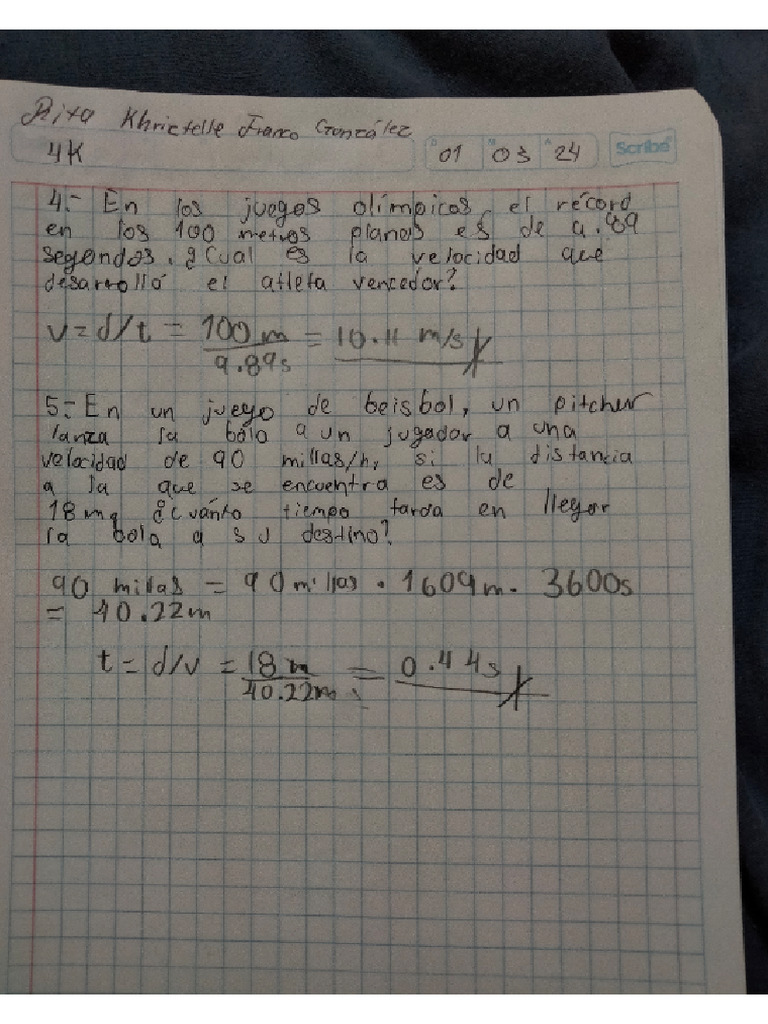 Rita Khrictelle Franco González
4K
01 03 24 Scribe
4.- En los juegos olímpicos, el récord
en los 100 metros planos es de 9.89
segundos. ¿Cual es la velocidad que
desarrolló el atleta vencedor?
v = d/t = 100 m / 9.89s = 10.11 m/s
5.- En un juego de beisbol, un pitcher
lanza la bola a un jugador a una
velocidad de 90 millas/h, si la distancia
a la que se encuentra es de
18 m, ¿Cuánto tiempo tarda en llegar
la bola a su destino?
90 millas = 90 millas . 1609 m . 3600s
= 40.22m
t = d/v = 18 m / 40.22m = 0.44s